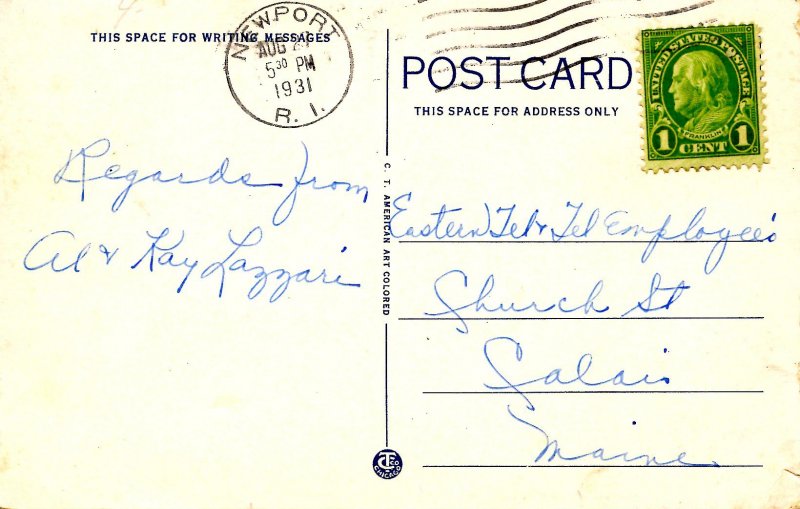 THIS SPACE FOR WRITING MESSAGES
NEWPORT
AUG
5 30 PM
1931
R. I.
POST CARD
THIS SPACE FOR ADDRESS ONLY
UNITED STATES POSTAGE
FRANKLIN
1 CENT 1
Regards from
Al & Kay Lazzari
C. T. AMERICAN ART COLORED
Eastern Tel & Tel Employee's
Church St
Calais
Maine
CHICAGO